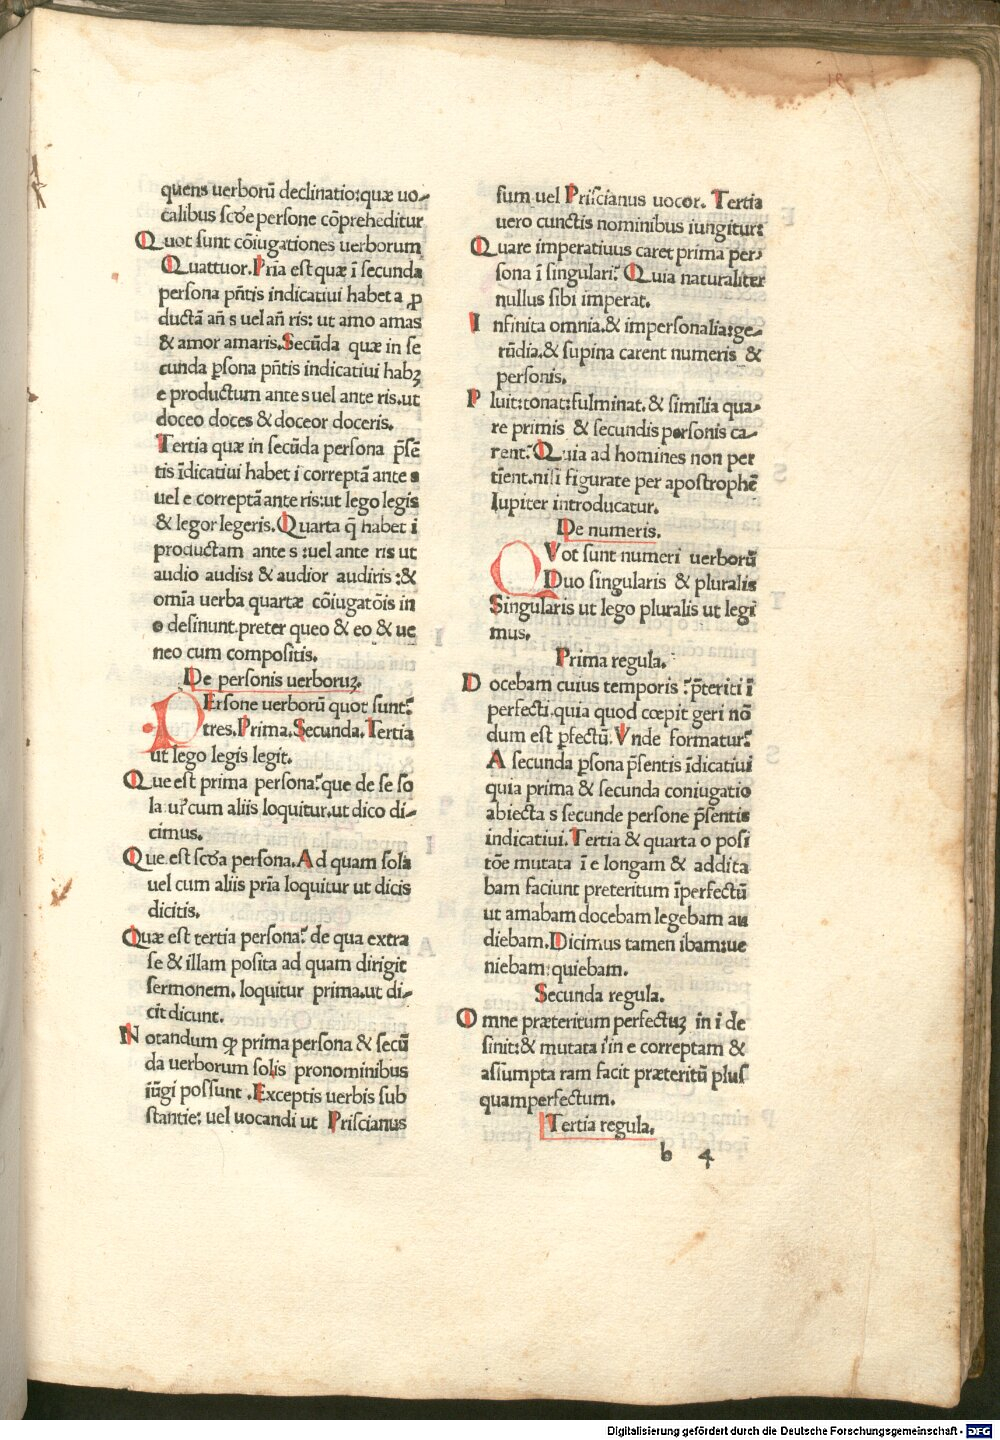 quens uerborū declinatio:quæ uo-
calibus scďe persone cōpreheditur
Quot sunt cōiugationes uerborum
Quattuor.Pria est quæ ī secunda
persona pn̄tis indicatiui habet a ꝓ
ductā an̄ s uel an̄ ris: ut amo amas
& amor amaris.Secūda quæ in se
cunda ꝑsona pn̄tis indicatiui habꝫ
e productum ante s uel ante ris.ut
doceo doces & doceor doceris.
Tertia quæ in secūda persona p̄sē
tis īdicatiui habet i correptā ante s
uel e correptā ante ris:ut lego legis
& legor legeris.Quarta q̄ habet i
productam ante s :uel ante ris ut
audio audis: & audior audiris :&
omīa uerba quartæ cōiugatōis in
o desinunt.preter queo & eo & ue
neo cum compositis.
De personis uerboruꝫ.
PErsone uerborū quot sunt?
tres.Prima.Secunda.Tertia
ut lego legis legit.
Que est prima persona? que de se so
la ur̄ cum aliis loquitur.ut dico di-
cimus.
Que est scďa persona.Ad quam sola
uel cum aliis pria loquitur ut dicis
dicitis.
Quæ est tertia persona? de qua extra
se & illam posita ad quam dirigit
sermonem. loquitur prima.ut di-
cit dicunt.
Notandum ꝙ prima persona & secū
da uerborum solis pronominibus
iūgi possunt .Exceptis uerbis sub
stantie: uel uocandi ut Priscianus
sum uel Priscianus uocor. Tertia
uero cunctis nominibus iungitur:
Quare imperatiuus caret prima per-
sona ī singulari? Quia naturaliter
nullus sibi imperat.
Infinita omnia.& impersonalia:ge-
rūdia.& supina carent numeris &
personis.
Pluit:tonat:fulminat.& similia qua-
re primis & secundis personis ca-
rent? Quia ad homines non per
tīent.nisi figurate per apostrophē
Iupiter introducatur.
De numeris.
QVot sunt numeri uerborū
Duo singularis & pluralis
Singularis ut lego pluralis ut legi
mus.
Prima regula.
Docebam cuius temporis ? p̄teriti ī
perfecti.quia quod cœpit geri nō
dum est ꝑfectū.Vnde formatur?
A secunda ꝑsona p̄sentis īdicatiui
quia prima & secunda coniugatio
abiecta s secunde persone p̄sentis
indicatiui.Tertia & quarta o posi
tōe mutata ī e longam & addita
bam faciunt preteritum īperfectū
ut amabam docebam legebam au
diebam.Dicimus tamen ibam:ue
niebam:quiebam.
Secunda regula.
Omne præteritum perfectuꝫ in i de
sinit:& mutata i in e correptam &
assumpta ram facit præteritū plus
quamperfectum.
Tertia regula.
b 4
Digitalisierung gefördert durch die Deutsche Forschungsgemeinschaft - DFG